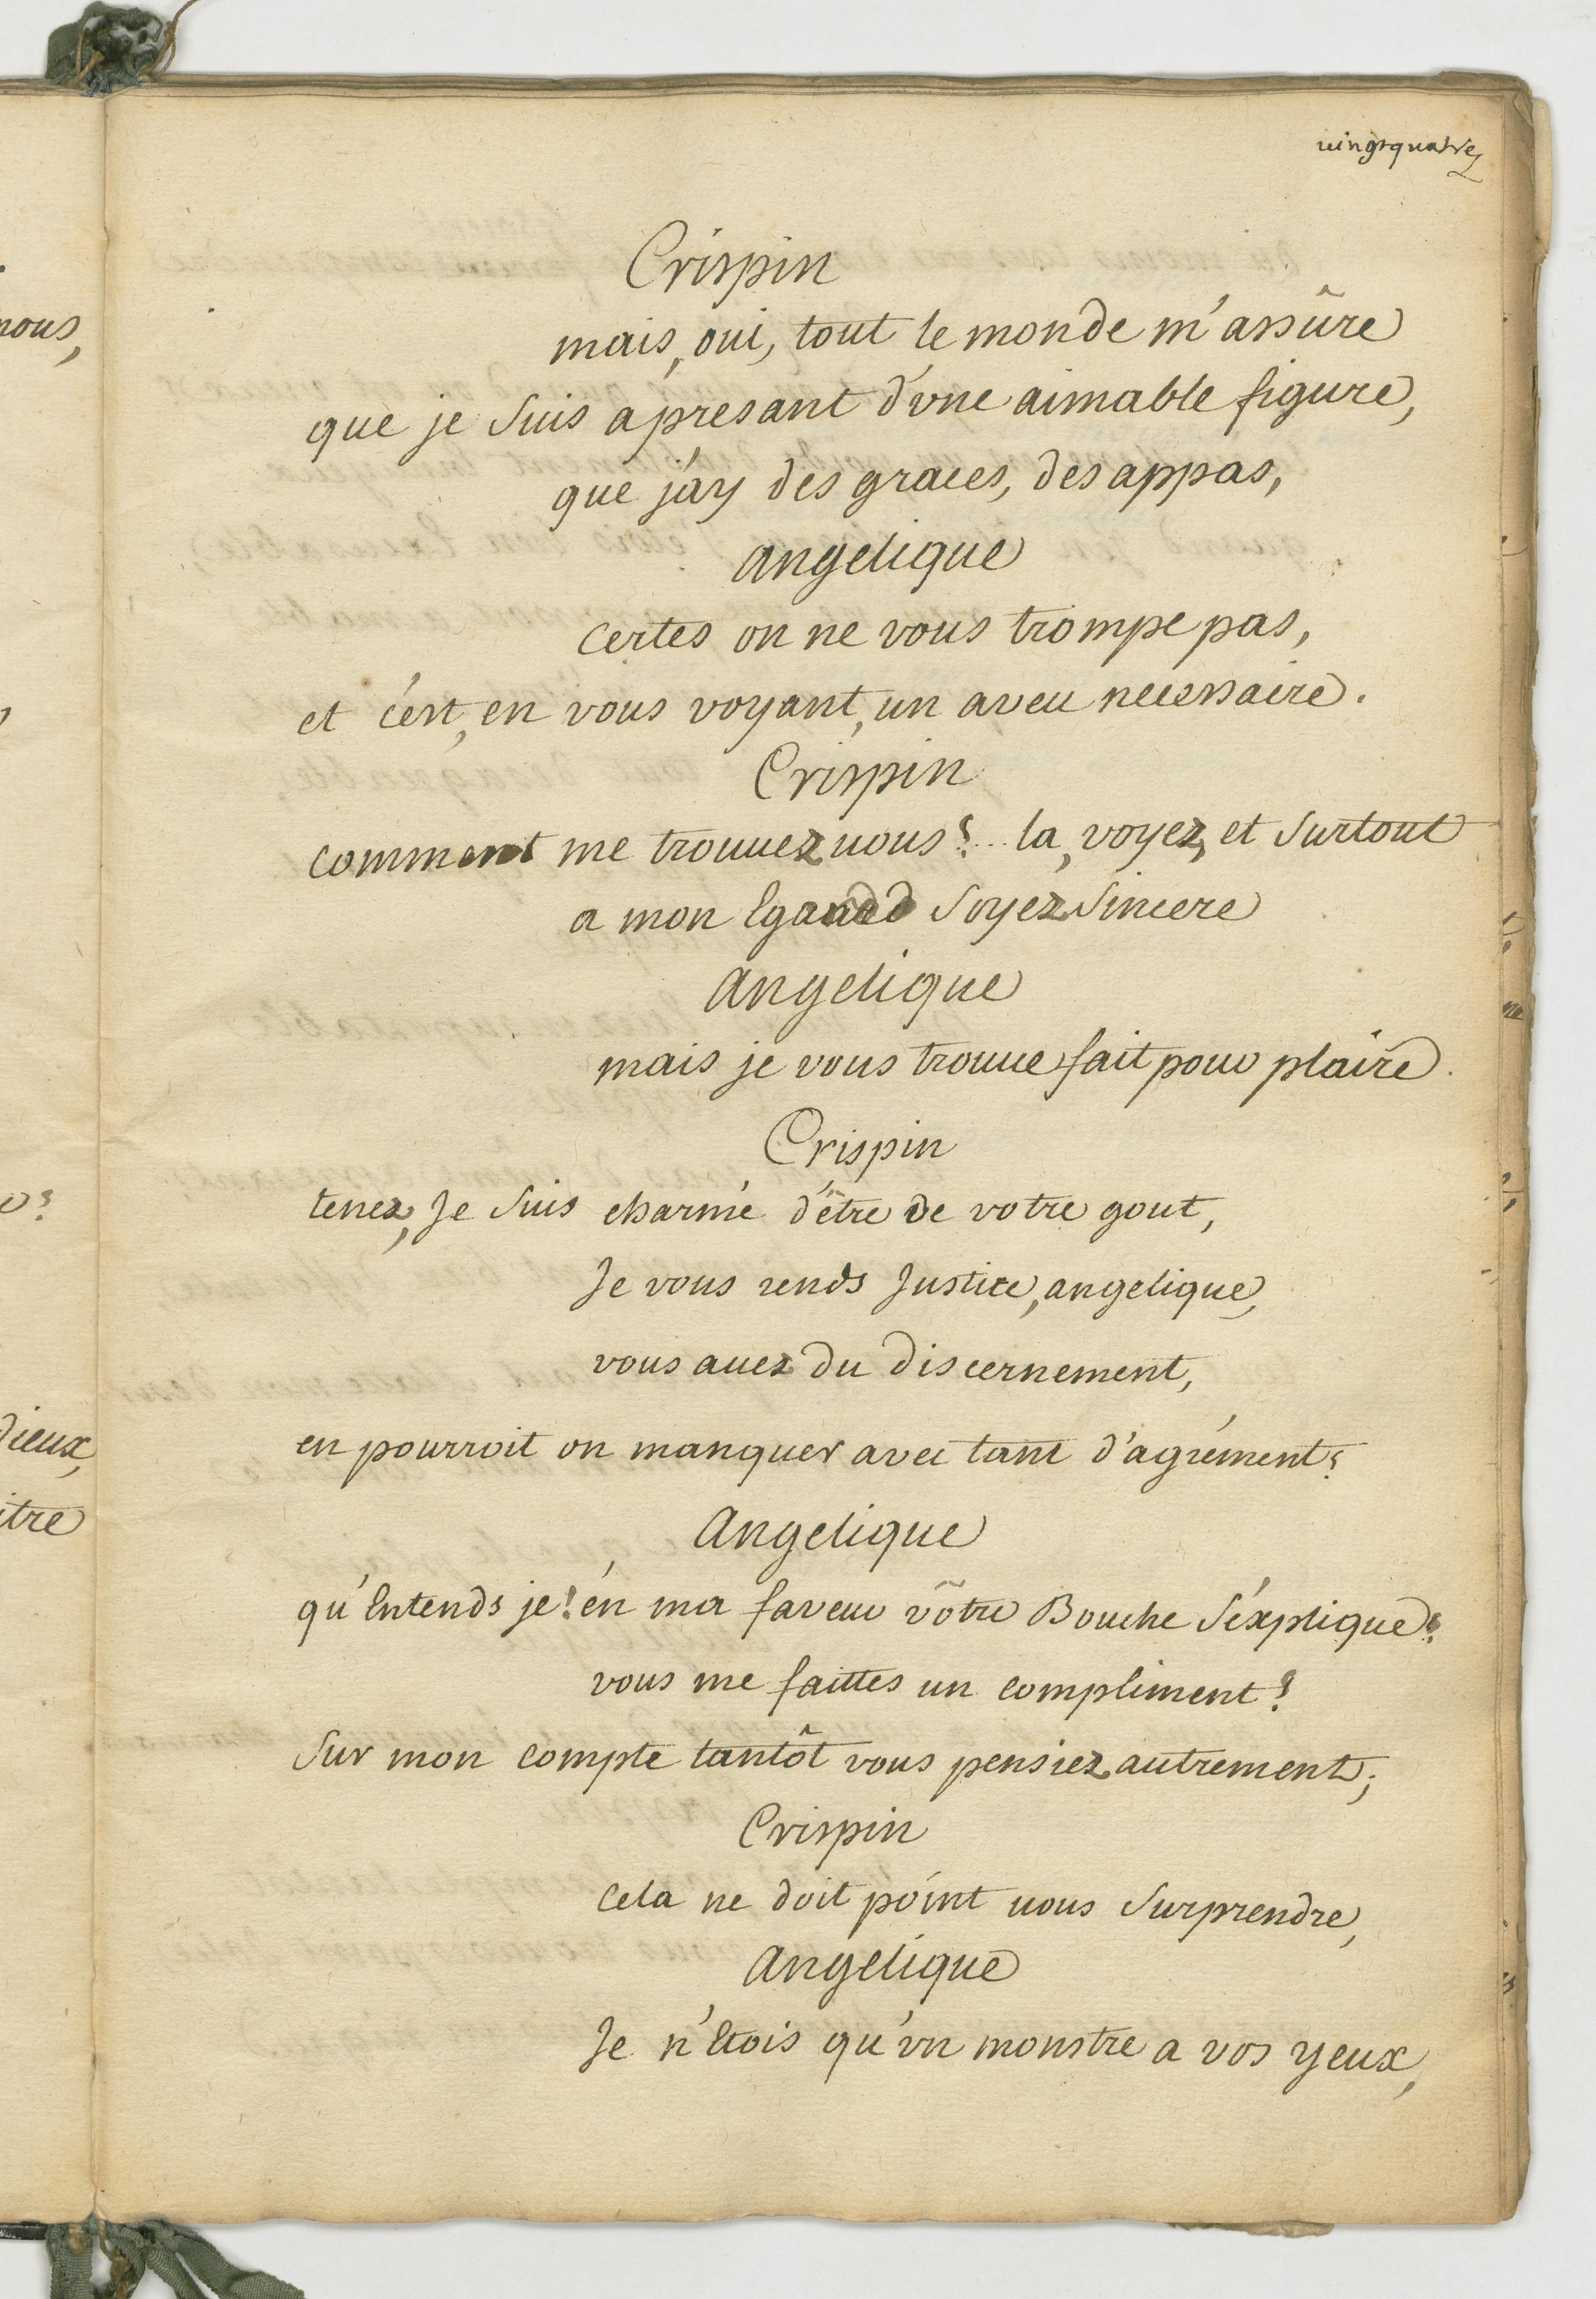 vingtquatre
Crispin
mais, oui, tout le monde m'assûre
que je suis apresant d'vne aimable figure,
que j'ay des graces, des appas,
angelique
certes on ne vous trompe pas,
et c'est, en vous voyant, un aveu necessaire.
Crispin
comment me trouuez uous? .. la, voyez, et surtout
a mon Egard soyez sincere
angelique
mais je vous trouue fait pour plaire.
Crispin
tenez, Je suis charmé d'être de votre gout,
Je vous rends Justice, angelique,
vous auez du discernement,
en pourroit on manquer avec tant d'agrément?
Angelique
qu'Entends je! én ma faveur vôtre Bouche s'éxplique?
vous me faittes un compliment?
sur mon compte tantôt vous pensiez autrement;
Crispin
cela ne doit point uous surprendre,
angelique
Je n'Etois qu'vn monstre a vos yeux,
nous,
o?
dieux,
itre